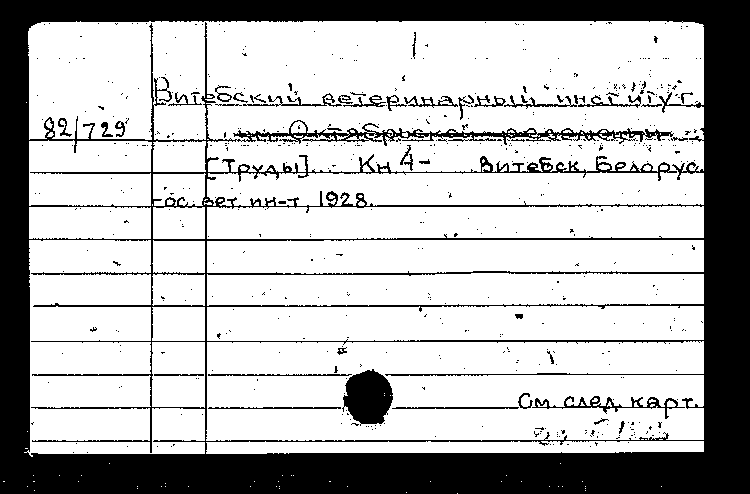 Витебский ветеринарный институт.
82/729 им Октябрьской революции
[Труды]. Кн 4- Витебск, Белорус.
гос. вет. ин-т, 1928.
См. след. карт.